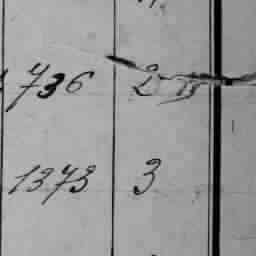 736 2
1373 3